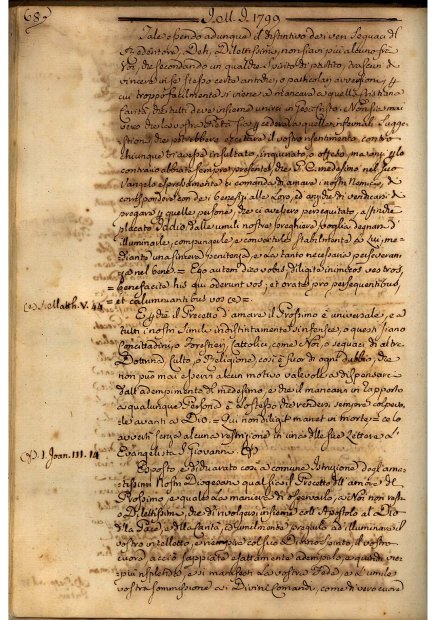 68.
Tale essendo adunque il distintivo de' veri Seguaci di
Redentore, Deh, Dilettissimi, non siavi più alcuno fra
Voi, che secondando un qualche spirito di partito, trascuri di
vincere in se stesso certe antiche, o particolari avversioni, p
cui troppo facilmente si viene a mancare a quella Cristiana
Carità, che tutti deve insieme unirci in Gesù Cristo. Non sia mai
vero che la vostra
stione, che potrebbe eccitare il vostro risentimento contro
chiunque v'avesse insultato, ingiuriato, o offeso, ma anzi p lo
contrario abbiate sempre presente, che G. C. medesimo nel suo
Vangelo espressamente ci comanda di amare i nostri Nemici, di
corrispondere con de' benefizj alle Loro, ed anche di
pregare p quelle persone, che ci avessero perseguitato, affinchè
placato Iddio dalle umili nostre preghiere voglia degnarsi d'
illuminarle, compungerle, e convertirle stabilmente a Lui, me-
diante una sincera penitenza, e la tanto necessaria perseveran-
za nel bene. = Ego autem dico vobis: diligite inimicos vestros,
benefacite his qui oderunt vos; et orate pro persequentibus,
et calumniantibus vos (a) =
(a) Matth. V. 44
E p che il Precetto d'amare il Prossimo è universale, e a
tutti i nostri Simili indistintamente si estende, o questi siano
Concittadini, o Forestieri, Cattolici, come Noi, o seguaci di altre
Dottrina, Culto, o Religione, così è fuor di ogni dubbio, che
non può mai esservi alcun motivo valevole a dispensare
dall'adempimento di medesimo, e che il mancare in rapporto
a qualunque Persona è lo stesso che rendersi sempre colpevo-
le avanti a Dio. = Qui non diligit manet in morte = ce lo
avverte senza alcuna restrizione in una delle sue Lettere l'
Evangelista S. Giovanni. (b)
(b) I. Joan. III. 14
Esposto, e dichiarato così a comune Istruzione degli ama-
tissimi Nostri Diocesani qual sia il Precetto dell'amore del
Prossimo, e quale la maniera di osservarlo, a Noi non resta
o Dilettissimi, che di rivolgerci insieme coll'Apostolo al Dio
della Pace, e della Santità, ed umilmente pregarlo ad illuminare il
vostro intelletto, e riempire col suo Divino Spirito il vostro
Cuore, acciò sappiate esattamente adempirlo, e quindi vie-
più risplenda, e si manifesti la vostra Fede, e la umile
vostra sommissione ai Divini Comandi, come di vero cuore